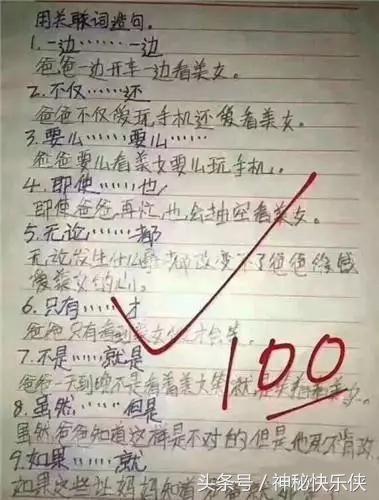 用关联词造句。
1.一边……一边
爸爸一边开车一边看美女。
2.不仅……还
爸爸不仅爱玩手机还爱看美女。
3.要么……要么……
爸爸要么看美女要么玩手机。
4.即使……也
即使爸爸再忙,也会抽空看美女。
5.无论……都
无论发生什么都改变不了爸爸
爱美女的心。
6.只有……才
爸爸只有看到美女才会笑。
7.不是……就是
爸爸一天到晚不是看着美女笑就是
8.虽然……但是
虽然爸爸知道这样是不对的,但是他死不肯改。
9.如果……就
如果这些让妈妈知道
100
头条号 / 神秘快乐侠